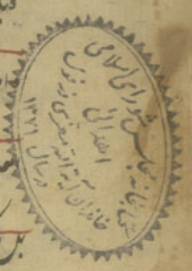 کتابخانه مجلس شورای اسلامی
اهدائی
خاندان آیة الله
در سال ۱۳۷۱